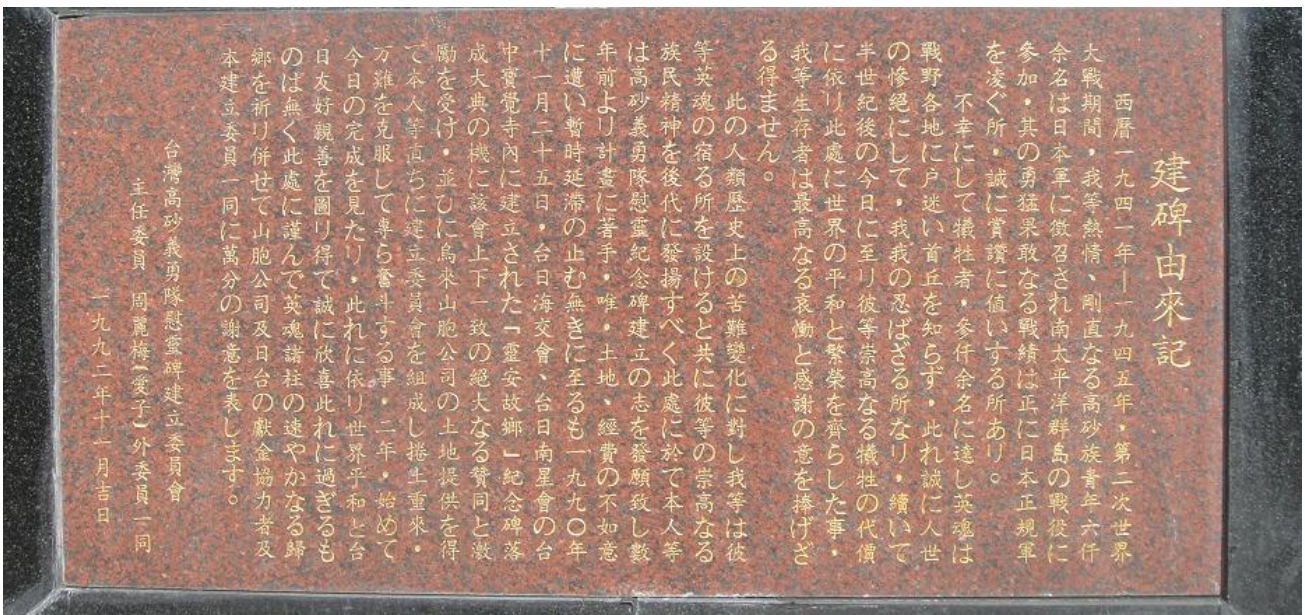 建碑由來記
西曆一九四一年—一九四五年・第二次世界
大戰期間・我等熱情、剛直なる高砂族青年六仟
余名は日本軍に徵召され南太平洋群島の戰役に
參加・其の勇猛果敢なる戰績は正に日本正規軍
を凌ぐ所・誠に賞讚に値いする所あり。
不幸にして犧牲者・參仟余名に達し英魂は
戰野各地に户迷い首丘を知らず・此れ誠に人世
の慘絕にして・我我の忍ばざる所なり・續いて
半世紀後の今日に至り彼等崇高なる犧牲の代價
に依り此處に世界の平和と繁榮を齊らした事・
我等生存者は最高なる哀慟と感謝の意を捧げざ
る得ません。
此の人類歷史上の苦難變化に對し我等は彼
等英魂の宿る所を設けると共に彼等の崇高なる
族民精神を後代に發揚すべく此處に於て本人等
は高砂義勇隊慰靈紀念碑建立の志を發願致し數
年前より計畫に著手・唯・土地、經費の不如意
に遭い暫時延滯の止む無きに至るも一九九〇年
十一月二十五日・台日海交會、台日南星會の台
中寶覺寺內に建立された「靈安故鄉」紀念碑落
成大典の機に該會上下一致の絕大なる贊同と激
勵を受け・並ひに烏來山胞公司の土地提供を得
て本人等直ちに建立委員會を組成し捲土重來・
万難を克服して專ら奮斗する事・二年・始めて
今日の完成を見たり・此れに依り世界平和と台
日友好親善を圖り得て誠に欣喜此れに過ぎるも
のは無く此處に謹んで英魂諸柱の速やかなる歸
鄉を祈り併せて山胞公司及日台の獻金協力者及
本建立委員一同に萬分の謝意を表します。
台灣高砂義勇隊慰靈碑建立委員會
主任委員 周麗梅(愛子)外委員一同
一九九二年十一月吉日